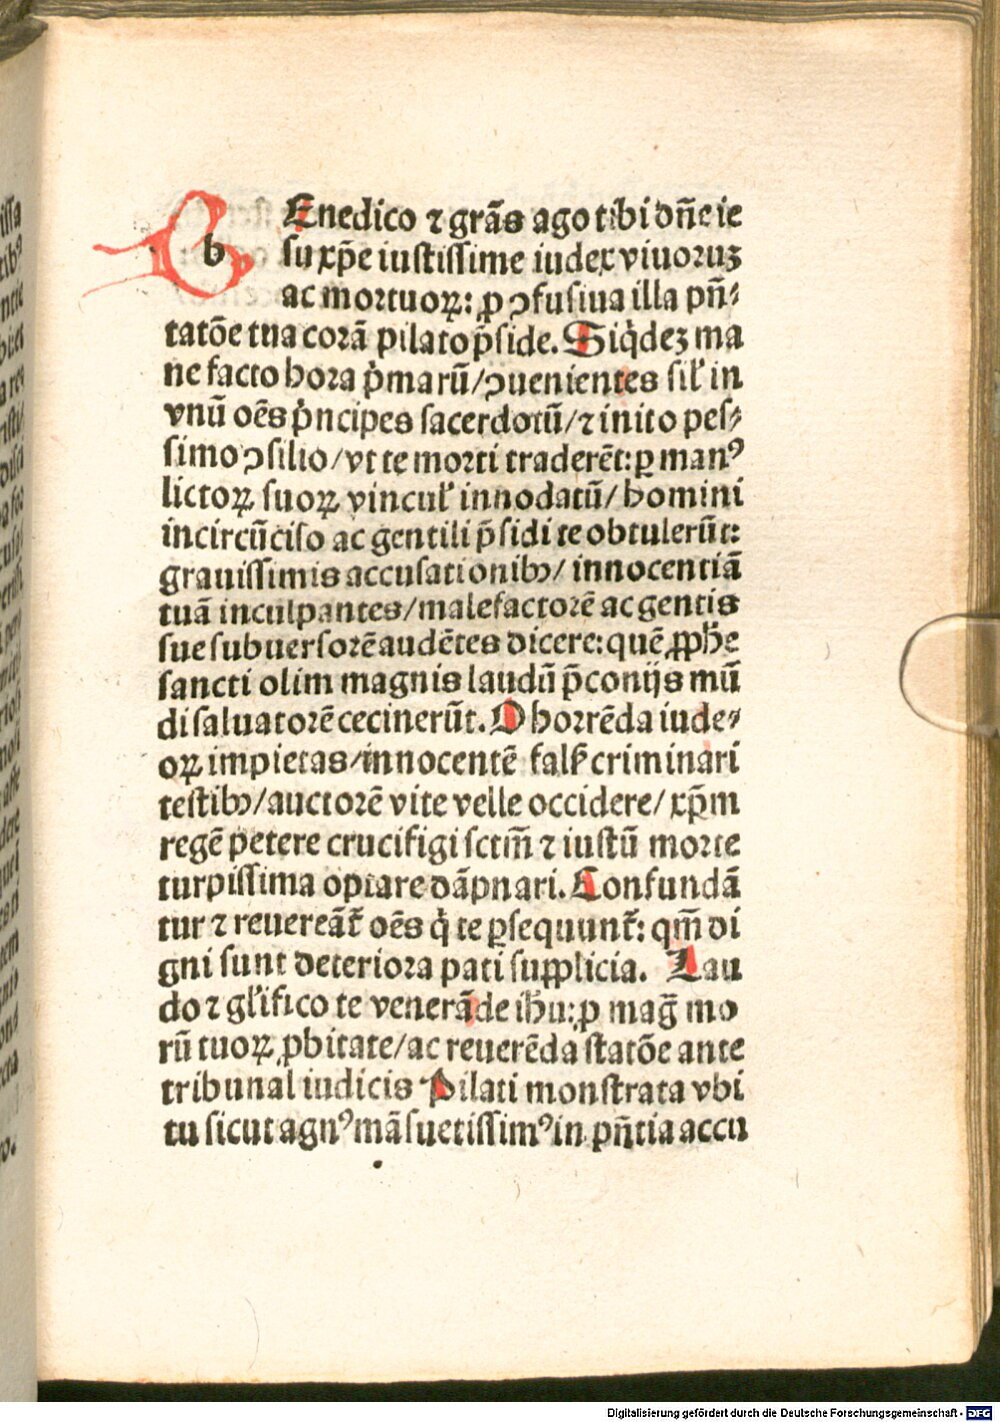 bEnedico ⁊ grãs ago tibi dñe ie
su xp̄e iustissime iudex viuoruꝫ
ac mortuoꝝ: ꝓ ꝯfusiua illa pñ⸗
tatõe tua corã pilato p̄side. Siq̇dez ma
ne facto hora ṗmarũ/ꝯuenientes sil̓ in
vnũ oẽs ṗncipes sacerdotũ/⁊ inito pes⸗
simo ꝯsilio/vt te morti traderẽt: ꝑ manꝰ
lictoꝝ suoꝝ vincul̓ innodatũ/homini
incircũciso ac gentili p̄sidi te obtulerũt:
grauissimis accusationibꝰ/ innocentiã
tuã inculpantes/malefactorẽ ac gentis
sue subuersorẽ audẽtes dicere: quẽ ꝓph̄e
sancti olim magnis laudũ p̄conijs mũ
di saluatorẽ cecinerũt. O horrẽda iude⸗
oꝝ impietas/innocentẽ fals̓ criminari
testibꝰ/auctorẽ vite velle occidere/ xp̄m
regẽ petere crucifigi sctm̃ ⁊ iustũ morte
turpissima optare dãpnari. Confundã
tur ⁊ revereãt̃ oẽs q̇ te ꝑsequunt̃: qm̃ di
gni sunt deteriora pati supplicia. Lau
do ⁊ gl̓ifico te venerãde ih̃u: ꝓ mag̃ mo
rũ tuoꝝ ꝓbitate/ac reuerẽda statõe ante
tribunal iudicis Pilati monstrata vbi
tu sicut agnꝰ mãsuetissimꝰ in pñtia accu
Digitalisierung gefördert durch die Deutsche Forschungsgemeinschaft - DFG